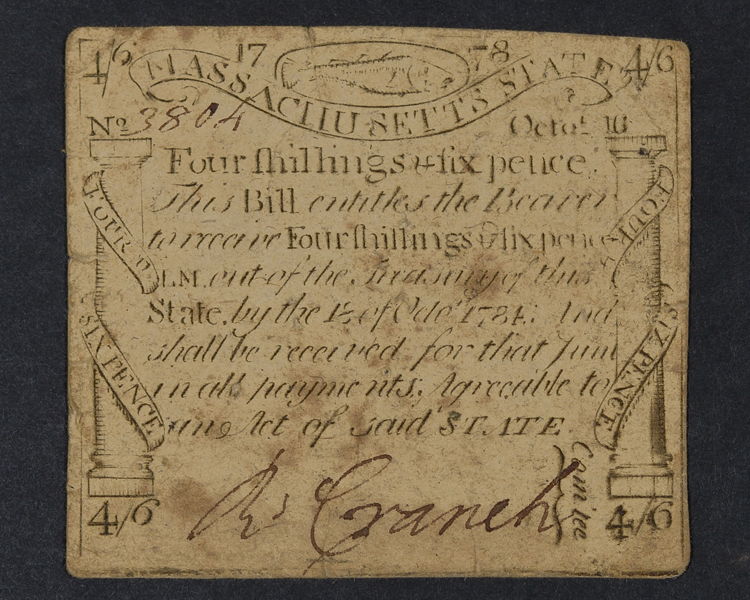 4/6 17 78 4/6
MASSACHUSETTS STATE
No 3804 Octor. 16
Four ſhillings & ſix pence.
This Bill entitles the Bearer
to receive Four ſhillings & ſix pence
L.M. out of the Treasury of this
State, by the 1st of Octor. 1784. And
shall be received for that Sum
in all payments, Agreeable to
an Act of said STATE.
FOUR S
SIX PENCE
FOUR
SIX PENCE
Rd Cranch
Com̃tee
4/6 4/6